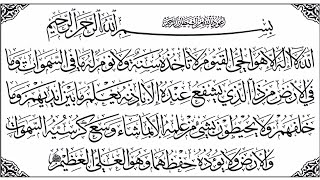 أعوذ بالله من الشيطان الرجيم
بسم الله الرحمن الرحيم
الله لا إله إلا هو الحي القيوم لا تأخذه سنة ولا نوم له ما في السموات وما
في الأرض من ذا الذي يشفع عنده إلا بإذنه يعلم ما بين أيديهم وما
خلفهم ولا يحيطون بشيء من علمه إلا بما شاء وسع كرسيه السموات
والأرض ولا يؤده حفظهما وهو العلي العظيم